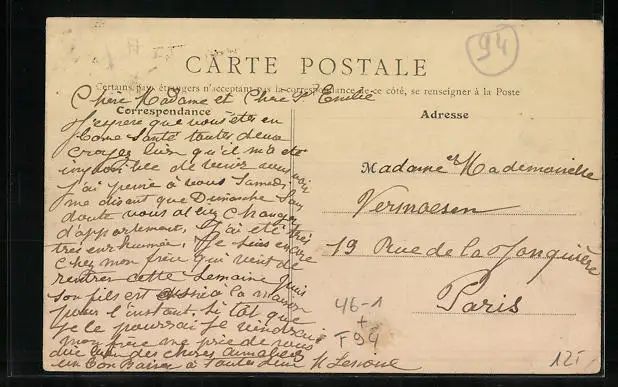 94
CARTE POSTALE
Certains pays étrangers n'acceptant pas la correspondance de ce côté, se renseigner à la Poste
Chère Madame et Chère Emilie
Correspondance
J'espère que vous êtes en
bonne santé toutes deux
croyez bien qu'il m'a été
de venir vous voir
J'ai pensé à vous Samedi
me disant que Dimanche sans
doute vous alliez changer
d'appartement, J'ai été très
très enrhumée, Je suis encore
chez mon frère qui vient de
rentrer cette semaine puis
son fils est à la maison
pour l'instant. Si tôt que
je le pourrai je viendrai
mon frère me prie de vous
dire bien des choses aimables
un bon Baiser à toutes deux
Adresse
Madame et Mademoiselle
Vermaesen
19 Rue de la Jonquière
Paris
46-1
+
F94
12F